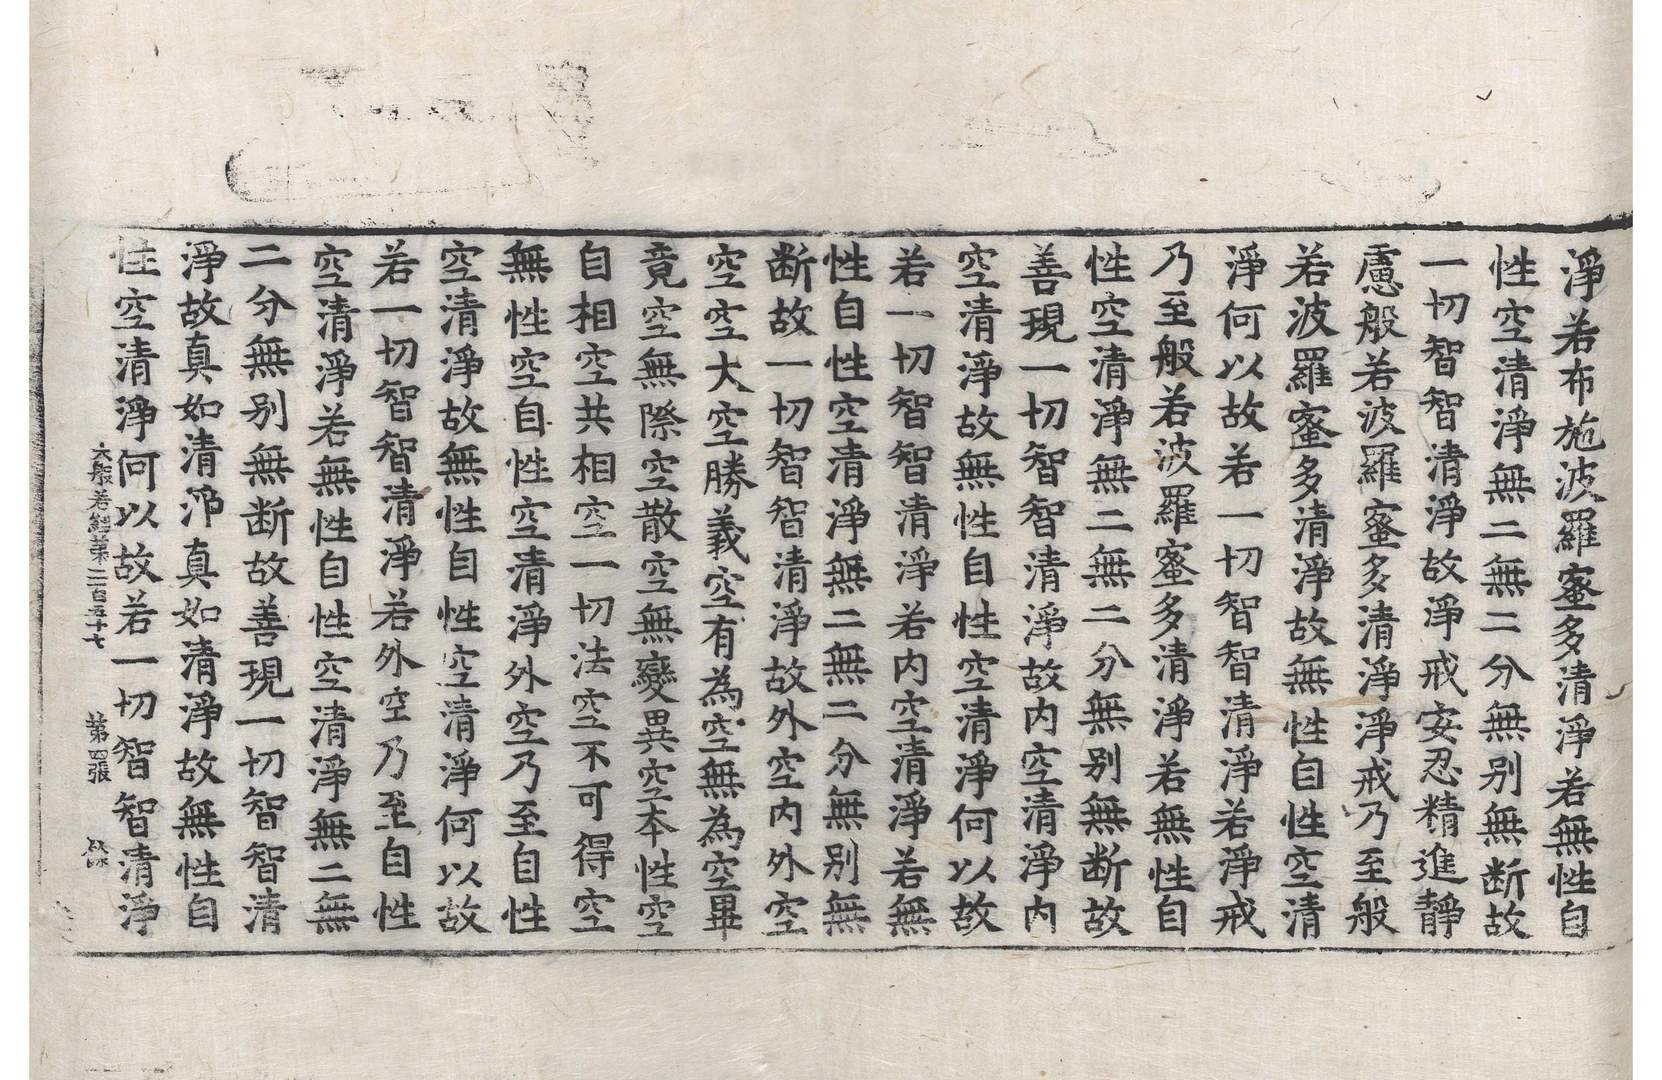 淨若布施波羅蜜多清淨若無性自
性空清淨無二無二分無别無断故
一切智智清淨故淨戒安忍精進靜
慮般若波羅蜜多清淨淨戒乃至般
若波羅蜜多清淨故無性自性空清
淨何以故若一切智智清淨若淨戒
乃至般若波羅蜜多清淨若無性自
性空清淨無二無二分無别無断故
善現一切智智清淨故内空清淨内
空清淨故無性自性空清淨何以故
若一切智智清淨若内空清淨若無
性自性空清淨無二無二分無别無
断故一切智智清淨故外空内外空
空空大空勝義空有為空無為空畢
竟空無際空散空無變異空本性空
自相空共相空一切法空不可得空
無性空自性空清淨外空乃至自性
空清淨故無性自性空清淨何以故
若一切智智清淨若外空乃至自性
空清淨若無性自性空清淨無二無
二分無别無断故善現一切智智清
淨故真如清淨真如清淨故無性自
性空清淨何以故若一切智智清淨
大般若經第二百五十七 第四張